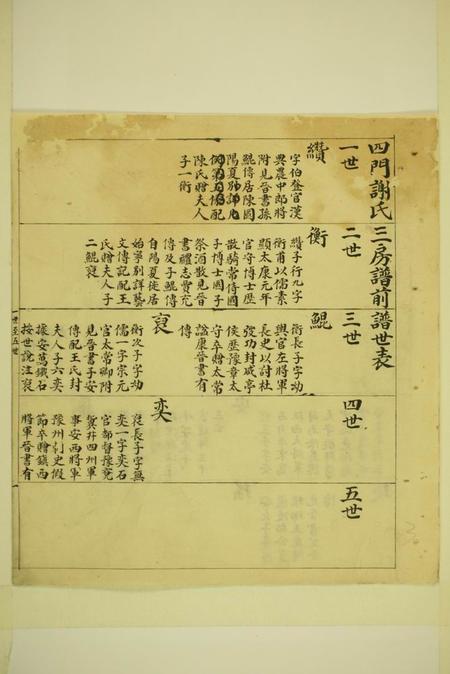 四門謝氏三房譜前譜世表
一世
纘
字伯登官漢
典農中郎將
附見晉書孫
鯤傳居陳國
陽夏別詳凡
例第五條配
陳氏贈夫人
子一衡
二世
衡
纘子行九字
衡甫以儒素
顯太康元年
官守博士歷
散騎常侍國
子博士國子
祭酒散見晉
書禮志賈充
傳及子鯤傳
自陽夏徙居
始寧別詳藝
文傳記配王
氏贈夫人子
二鯤裒
三世
鯤
衡長子字幼
輿官左將軍
長史以討杜
弢功封咸亭
侯歷豫章太
守卒贈太常
諡康晉書有
傳
裒
衡次子字幼
儒一字宗元
官太常卿附
見晉書子安
傳配王氏封
夫人子六奕
據安萬鐵石
按世說注裒
四世
奕
裒長子字無
奕一字奕石
官都督豫兗
冀并四州軍
事安西將軍
豫州刺史假
節卒贈鎮西
將軍晉書有
五世
一世至五世